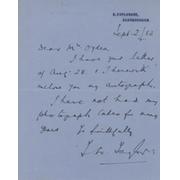 ESPLANADE,
SCARBOROUGH.
Sept. 2/
Dear Mr Ogden
I have your letter
of Aug. 28. & I herewith
enclose you my autograph.
I have not had my
photograph taken for many
years
Yrs faithfully
Taylor